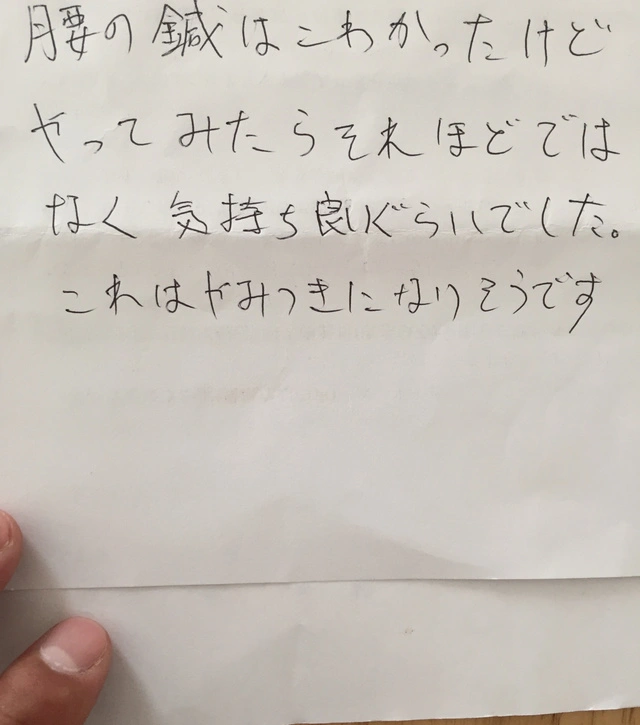 腰の鍼はこわかったけど
やってみたらそれほどでは
なく気持ち良いぐらいでした。
これはやみつきになりそうです